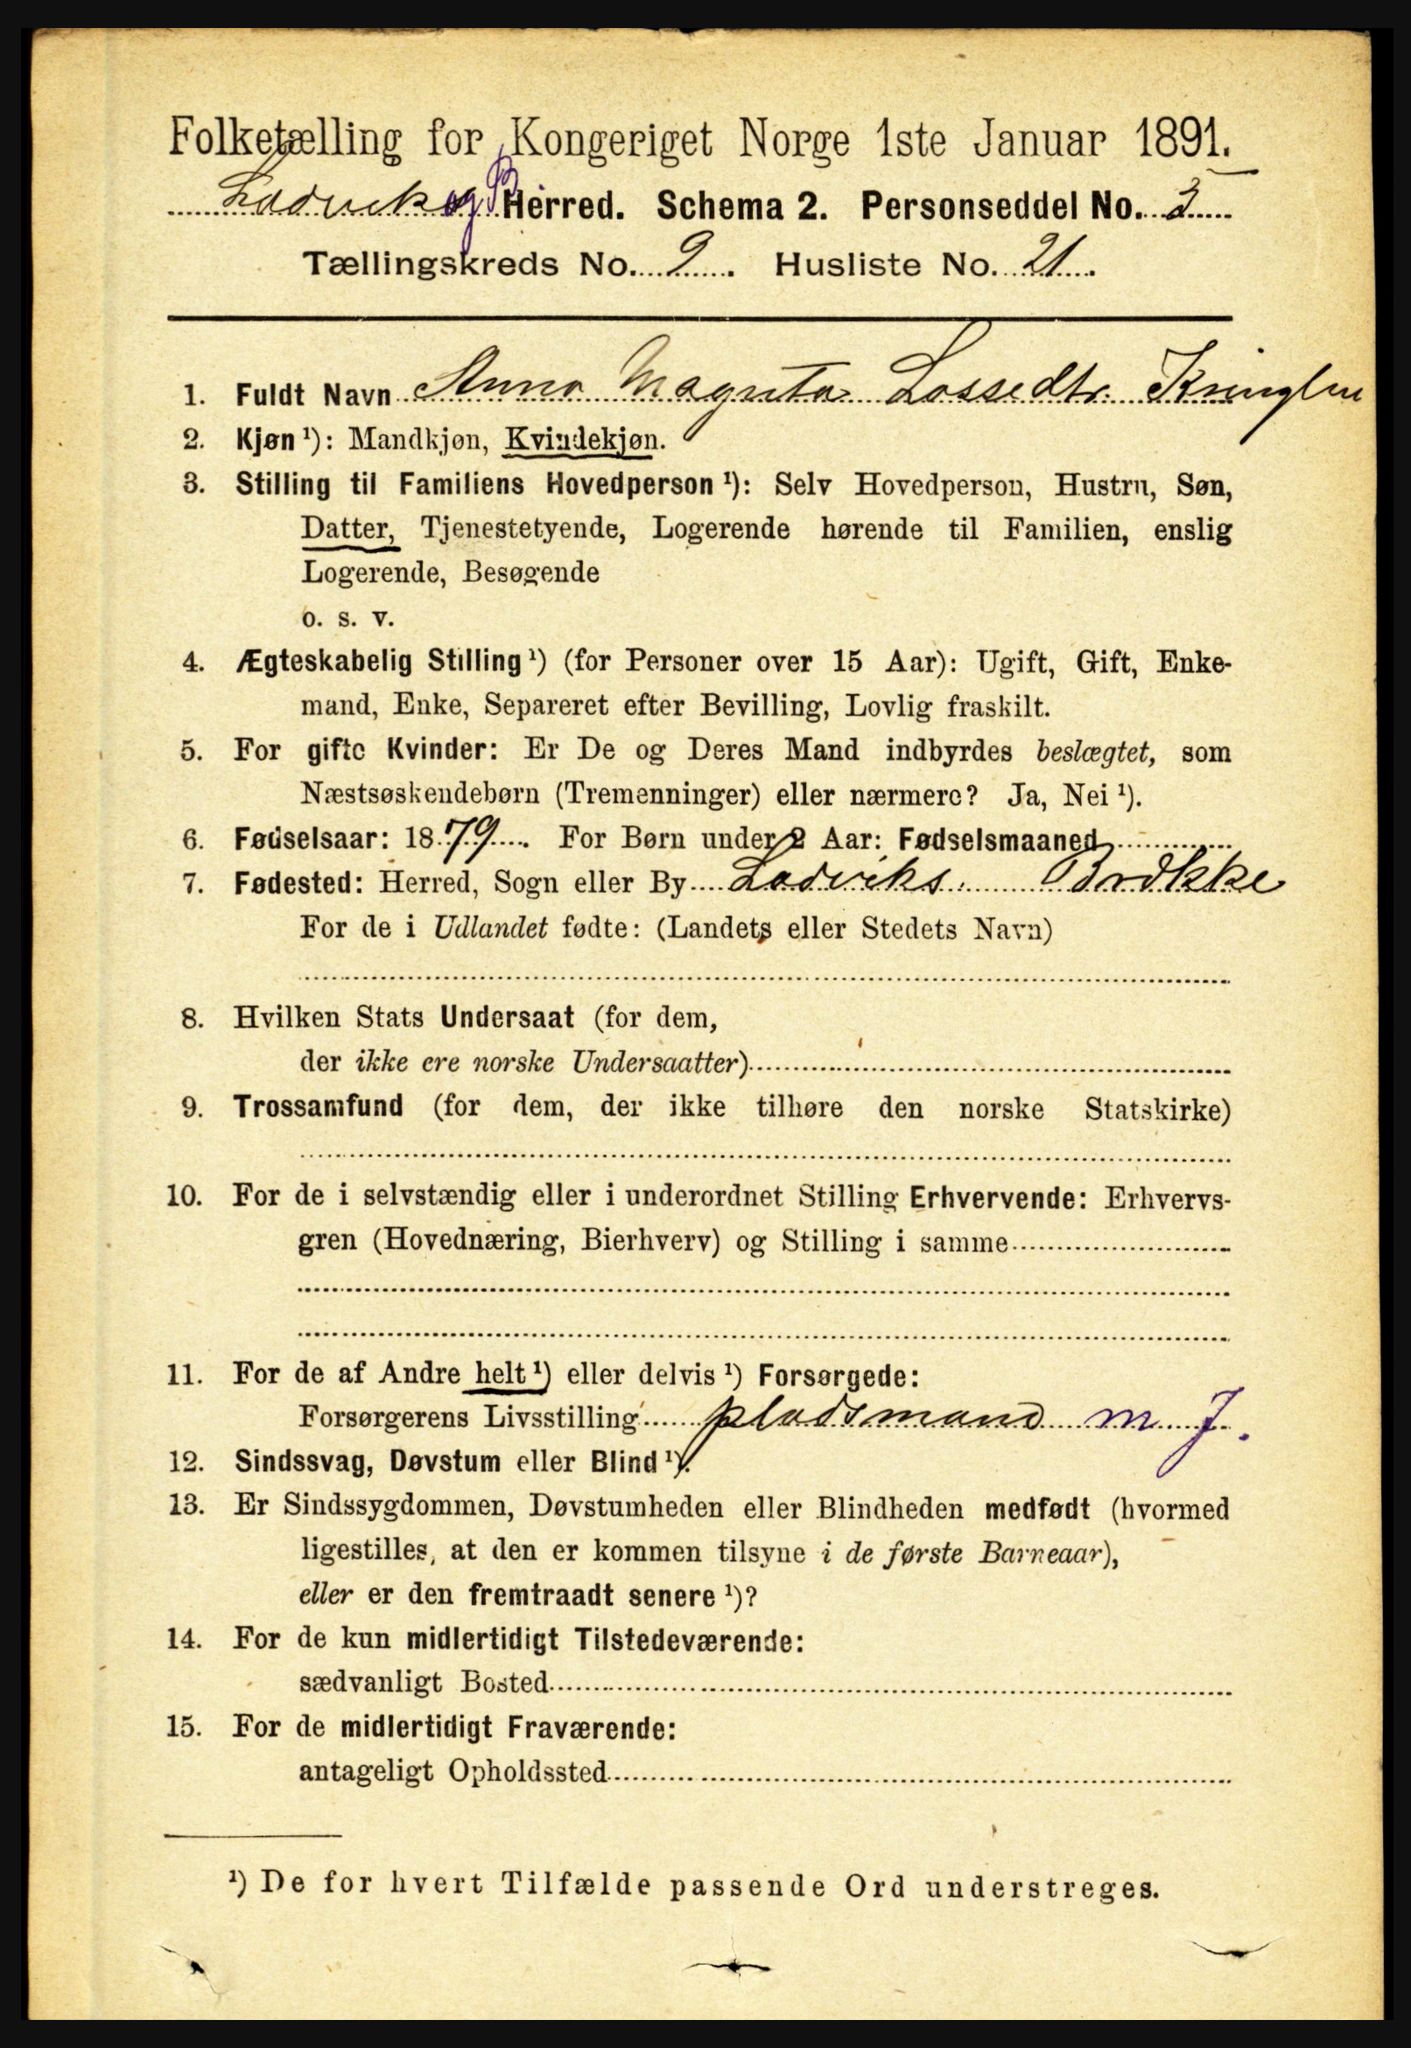 Folketælling for Kongeriget Norge 1ste Januar 1891.
Ladvik og B. Herred. Schema 2. Personseddel No. 5
Tællingskreds No. 2. Husliste No. 21.
1. Fuldt Navn Anna Magnta Lassedtr. Kringlen
2. Kjøn ¹): Mandkjøn, Kvindekjøn.
3. Stilling til Familiens Hovedperson ¹): Selv Hovedperson, Hustru, Søn,
Datter, Tjenestetyende, Logerende hørende til Familien, enslig
Logerende, Besøgende
o. s. v.
4. Ægteskabelig Stilling ¹) (for Personer over 15 Aar): Ugift, Gift, Enke-
mand, Enke, Separeret efter Bevilling, Lovlig fraskilt.
5. For gifte Kvinder: Er De og Deres Mand indbyrdes beslægtet, som
Næstsøskendebørn (Tremenninger) eller nærmere? Ja, Nei ¹).
6. Fødselsaar: 1879. For Børn under 2 Aar: Fødselsmaaned
7. Fødested: Herred, Sogn eller By Ladviks. Brække
For de i Udlandet fødte: (Landets eller Stedets Navn)
8. Hvilken Stats Undersaat (for dem,
der ikke ere norske Undersaatter)
9. Trossamfund (for dem, der ikke tilhøre den norske Statskirke)
10. For de i selvstændig eller i underordnet Stilling Erhvervende: Erhvervs-
gren (Hovednæring, Bierhverv) og Stilling i samme
11. For de af Andre helt ¹) eller delvis ¹) Forsørgede:
Forsørgerens Livsstilling pladsmand m J.
12. Sindssvag, Døvstum eller Blind ¹).
13. Er Sindssygdommen, Døvstumheden eller Blindheden medfødt (hvormed
ligestilles, at den er kommen tilsyne i de første Barneaar),
eller er den fremtraadt senere ¹)?
14. For de kun midlertidigt Tilstedeværende:
sædvanligt Bosted
15. For de midlertidigt Fraværende:
antageligt Opholdssted
¹) De for hvert Tilfælde passende Ord understreges.